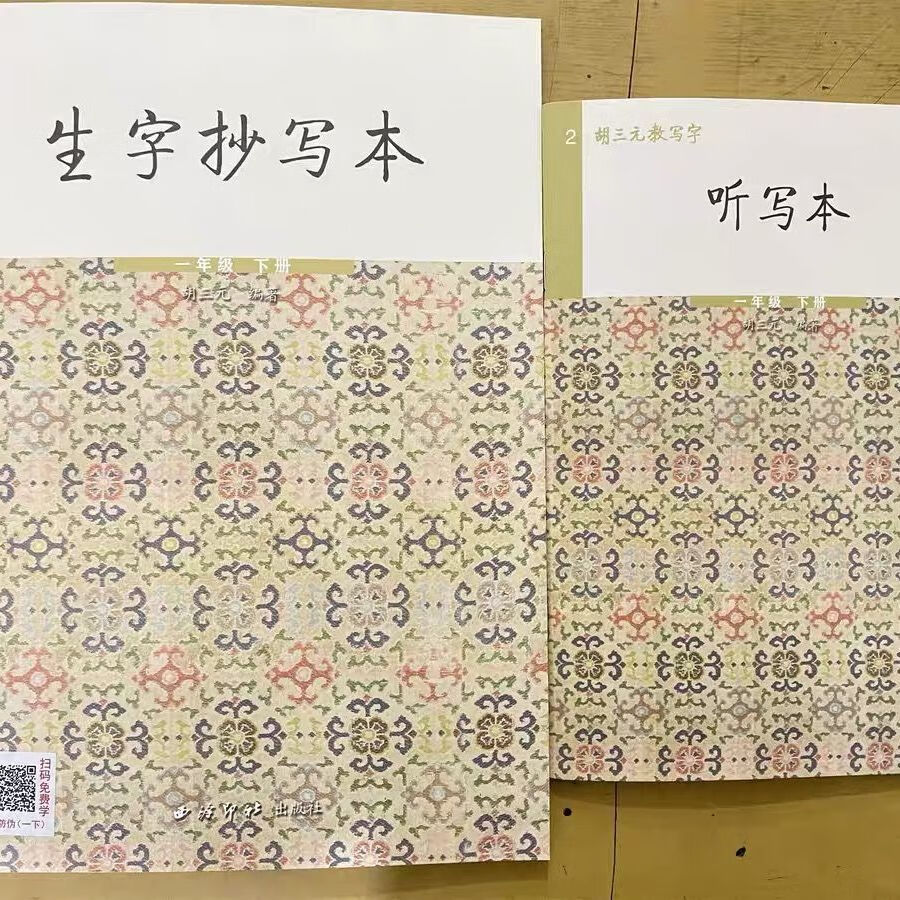 生字抄写本
一年级 下册
胡三元 编著
扫码免费学
防伪(一下)
西泠印社 出版社
2 胡三元教写字
听写本
一年级 下册
胡三元 编著